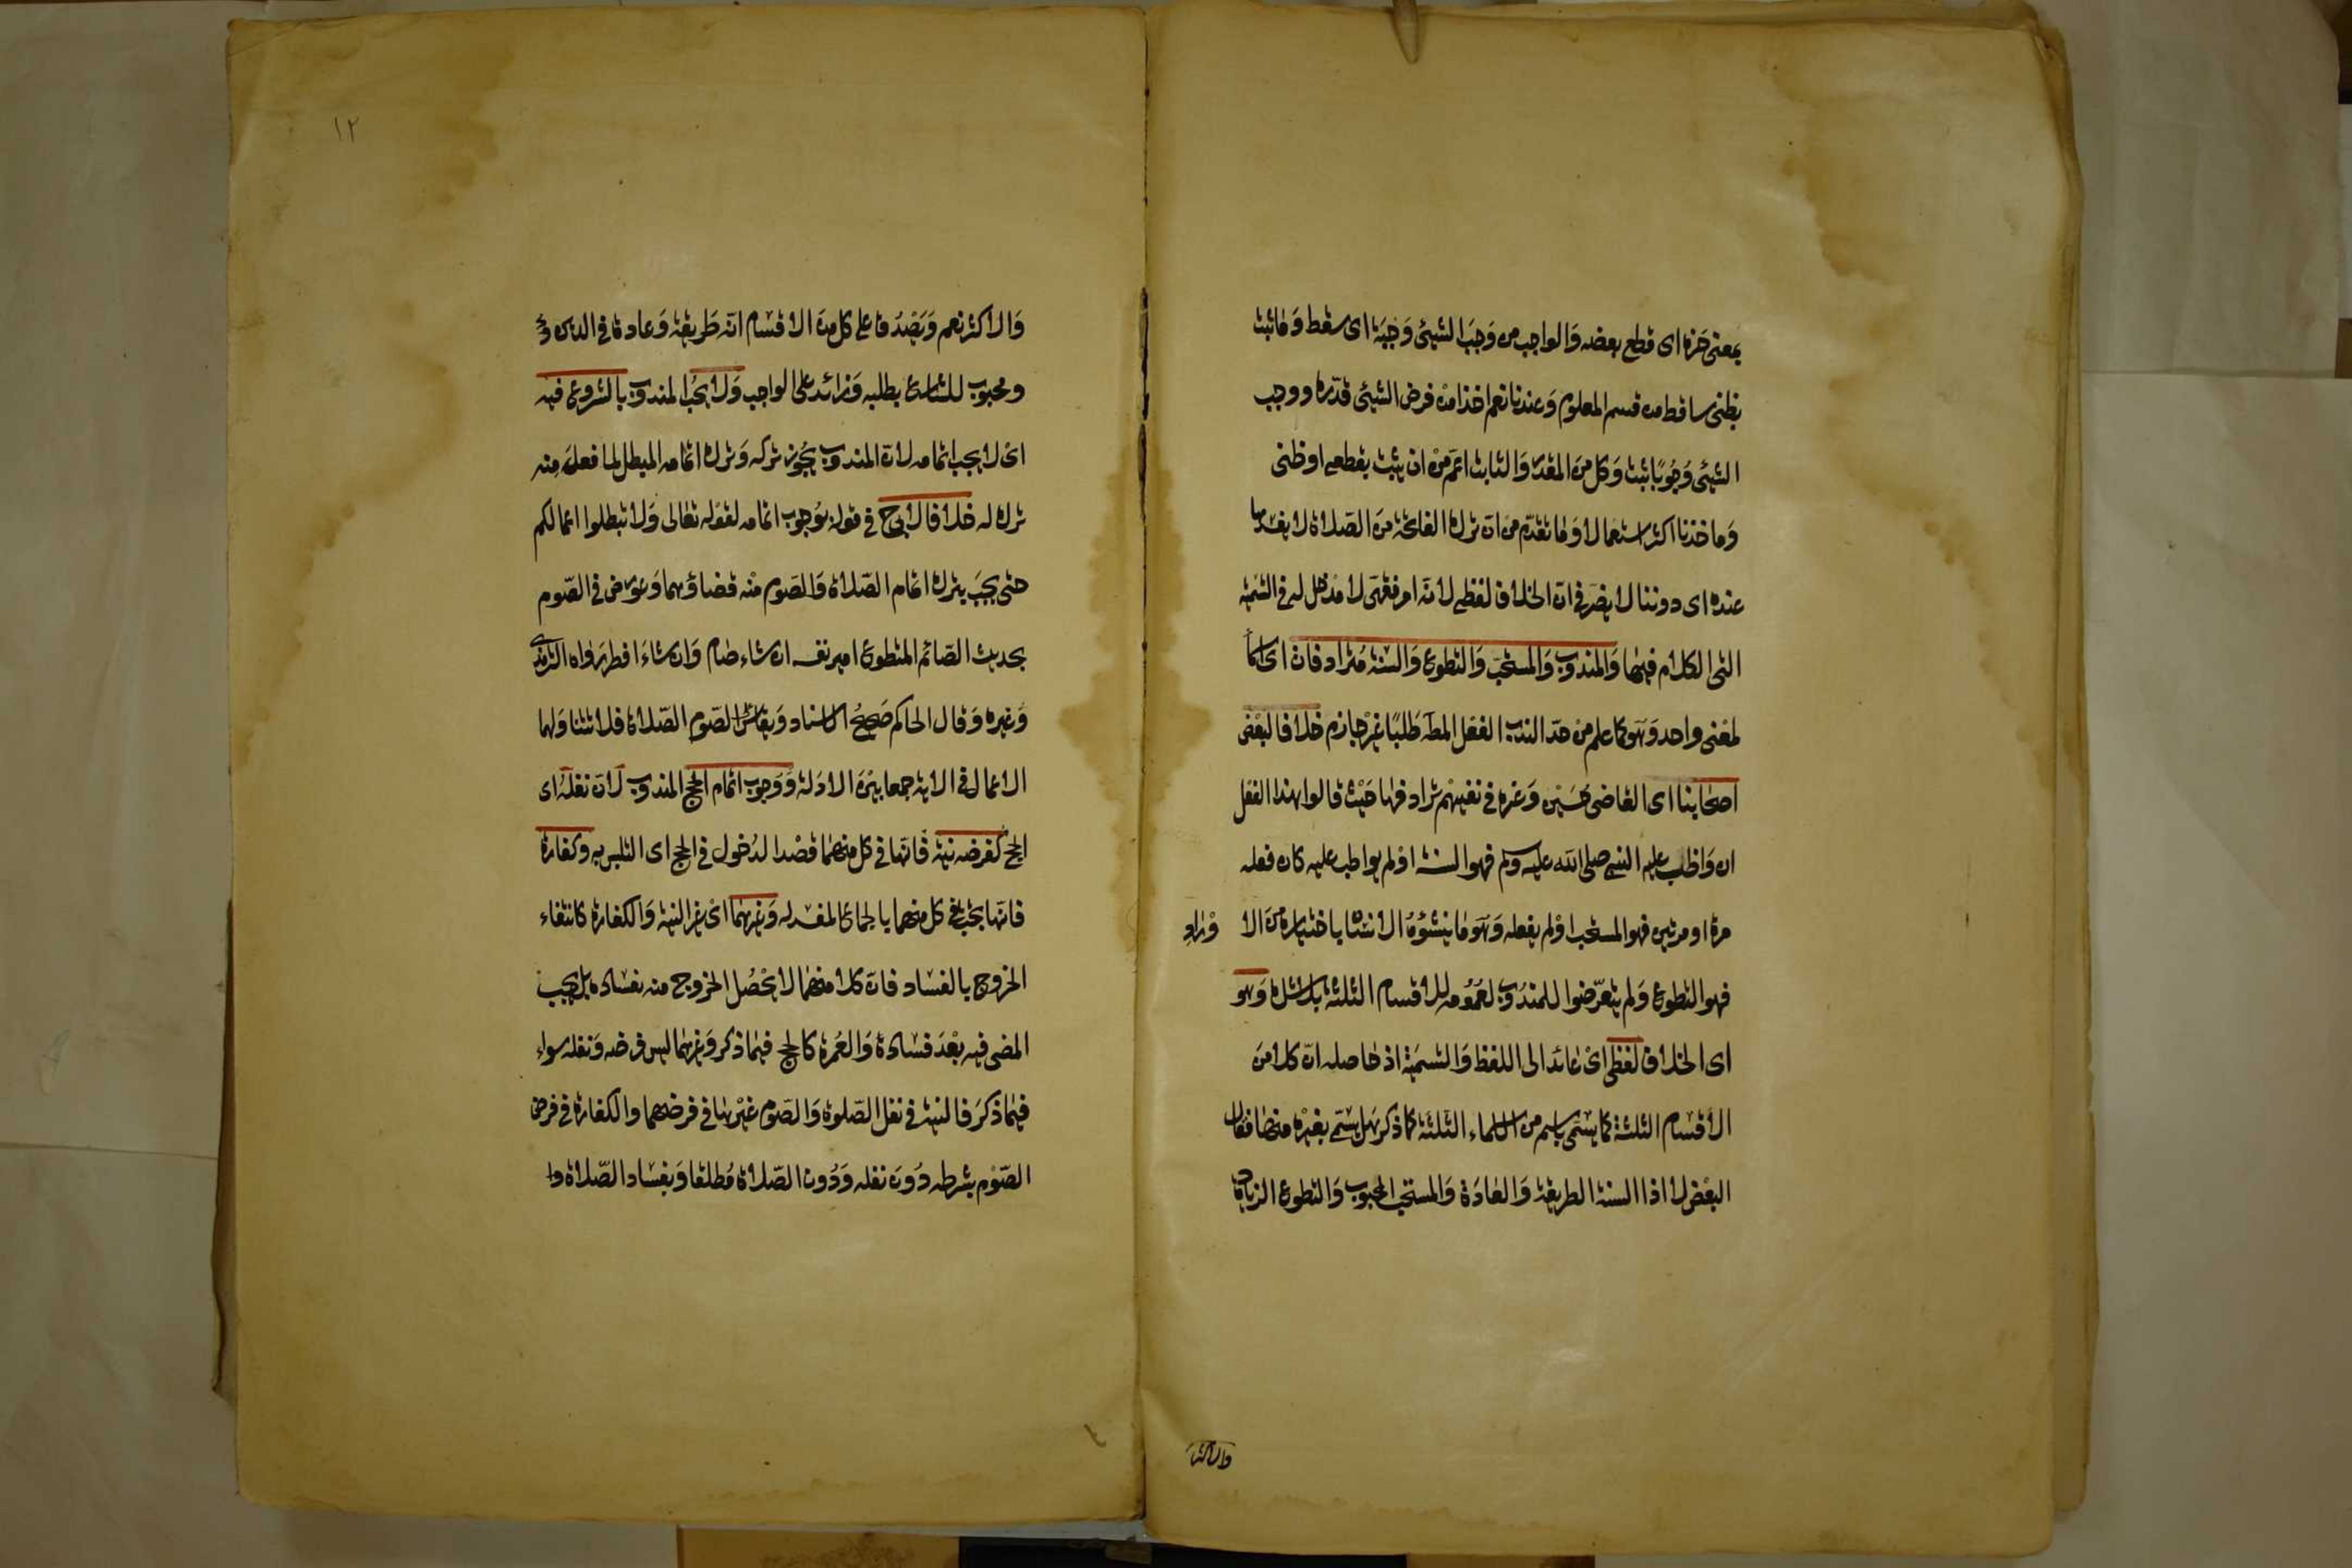 بمعنى حزه اى قطع بعضه والواجب من وجب الشيئ وجبة اى سقط وما ثبت
بظنى ساقط من قسم المعلوم وعندنا نعم اخذا من فرض الشيئ قدره ووجب
الشيئ وجوبا ثبت وكل من المقدر والثابت اعم من ان يثبت بقطعى او ظنى
وماخذنا اكثر استعمالا وما تقدم من ان ترك الفاتحة من الصلاة لا يفسدها
عنده اى دوننا لا يضر فى ان الخلاف لفظى لانه امر فقهى لا مدخل له فى التسمية
التى الكلام فيها والمندوب والمستحب والتطوع والسنة مترادفات اى اسما
لمعنى واحد وهو كما علم من حد الندب الفعل المط طلبا غير جازم خلافا لبعض
اصحابنا اى القاضى حسين وغيره فى نفيهم ترادفها حيث قالوا هذا الفعل
ان واظب عليه النبى صلى الله عليه وسلم فهو السنة او لم يواظب عليه كان فعله
مرة او مرتين فهو المستحب او لم يفعله وهو ما ينشؤه الانسان باختياره من الا
وراد
فهو التطوع ولم يتعرضوا للمندوب لعمومه للاقسام الثلثة بلا شك وهو
اى الخلاف لفظى اى عائد الى اللفظ والتسمية اذ حاصله ان كلا من
الاقسام الثلثة كما يسمى باسم من الاسماء الثلثة كما ذكر هل يسمى بغيره منها فقال
البعض لا اذ السنة الطريقة والعادة والمستحب المحبوب والتطوع الزيادة
والاكثر
١٢
والاكثر نعم ويصدق على كل من الاقسام انه طريقة وعادة فى الدين و
ومحبوب للشارع بطلبه وزائد على الواجب ولا يجب المندوب بالشروع فيه
اى لا يجب اتمامه لان المندوب يجوز تركه وترك اتمامه المبطل لما فعل منه
ترك له خلافا لابى ح فى قوله بوجوب اتمامه لقوله تعالى ولا تبطلوا اعمالكم
حتى يجب بترك اتمام الصلاة والصوم منه قضاؤهما وعورض فى الصوم
بحديث الصائم المتطوع امير نفسه ان شاء صام وان شاء افطر رواه الترمذى
وغيره وقال الحاكم صحيح الاسناد ويقاس الصوم الصلاة فلا تتناولهما
الاعمال فى الاية جمعا بين الادلة ووجوب اتمام الحج المندوب لان نفله اى
الحج كفرضه نية فانها فى كل منهما قصد الدخول فى الحج اى التلبس به وكفارة
فانها تجب فى كل منهما بالجماع المفسد له وغيرهما اى غير النية والكفارة كانتفاء
الخروج بالفساد فان كلا منهما لا يحصل الخروج منه بفساده بل يجب
المضى فيه بعد فساده والعمرة كالحج فيما ذكر وغيرهما ليس فرضه ونفله سواء
فيما ذكر فالنية فى نفل الصلوة والصوم غيرها فى فرضهما والكفارة فى فرض
الصوم بشرطه دون نفله ودون الصلاة مطلقا وبفساد الصلاة وا